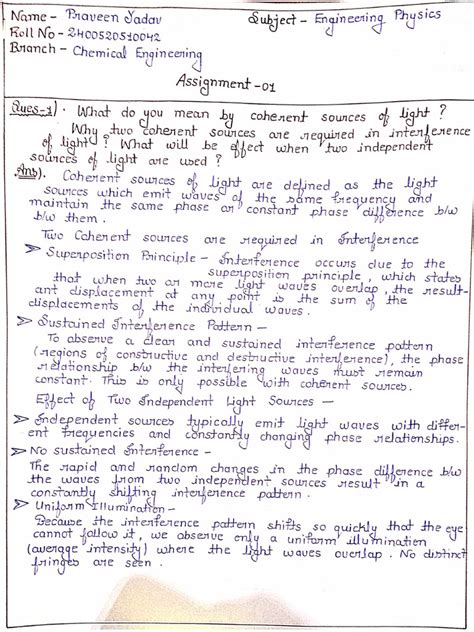 Name - Praveen Yadav
Subject - Engineering Physics
Roll No - 2400520510042
Branch - Chemical Engineering
Assignment -01
Ques-1). What do you mean by coherent sources of light ?
Why two coherent sources are required in interference
of light ? What will be effect when two independent
sources of light are used ?
Ans). Coherent sources of light are defined as the light
sources which emit waves of the same frequency and
maintain the same phase or constant phase difference b/w
b/w them.
Two Coherent sources are required in Interference
➤ Superposition Principle - Interference occurs due to the
superposition principle, which states
that when two or more light waves overlap, the result-
ant displacement at any point is the sum of the
displacements of the individual waves.
➤ Sustained Interference Pattern -
To observe a clear and sustained interference pattern
(regions of constructive and destructive interference), the phase
relationship b/w the interfering waves must remain
constant. This is only possible with coherent sources.
Effect of Two Independent Light Sources -
➤ Independent sources typically emit light waves with differ-
ent frequencies and constantly changing phase relationships.
➤ No sustained Interference -
The rapid and random changes in the phase difference b/w
the waves from two independent sources result in a
constantly shifting interference pattern.
➤ Uniform Illumination-
Because the interference pattern shifts so quickly that the eye
cannot follow it, we observe only a uniform illumination
(average intensity) where the light waves overlap. No distinct
fringes are seen.